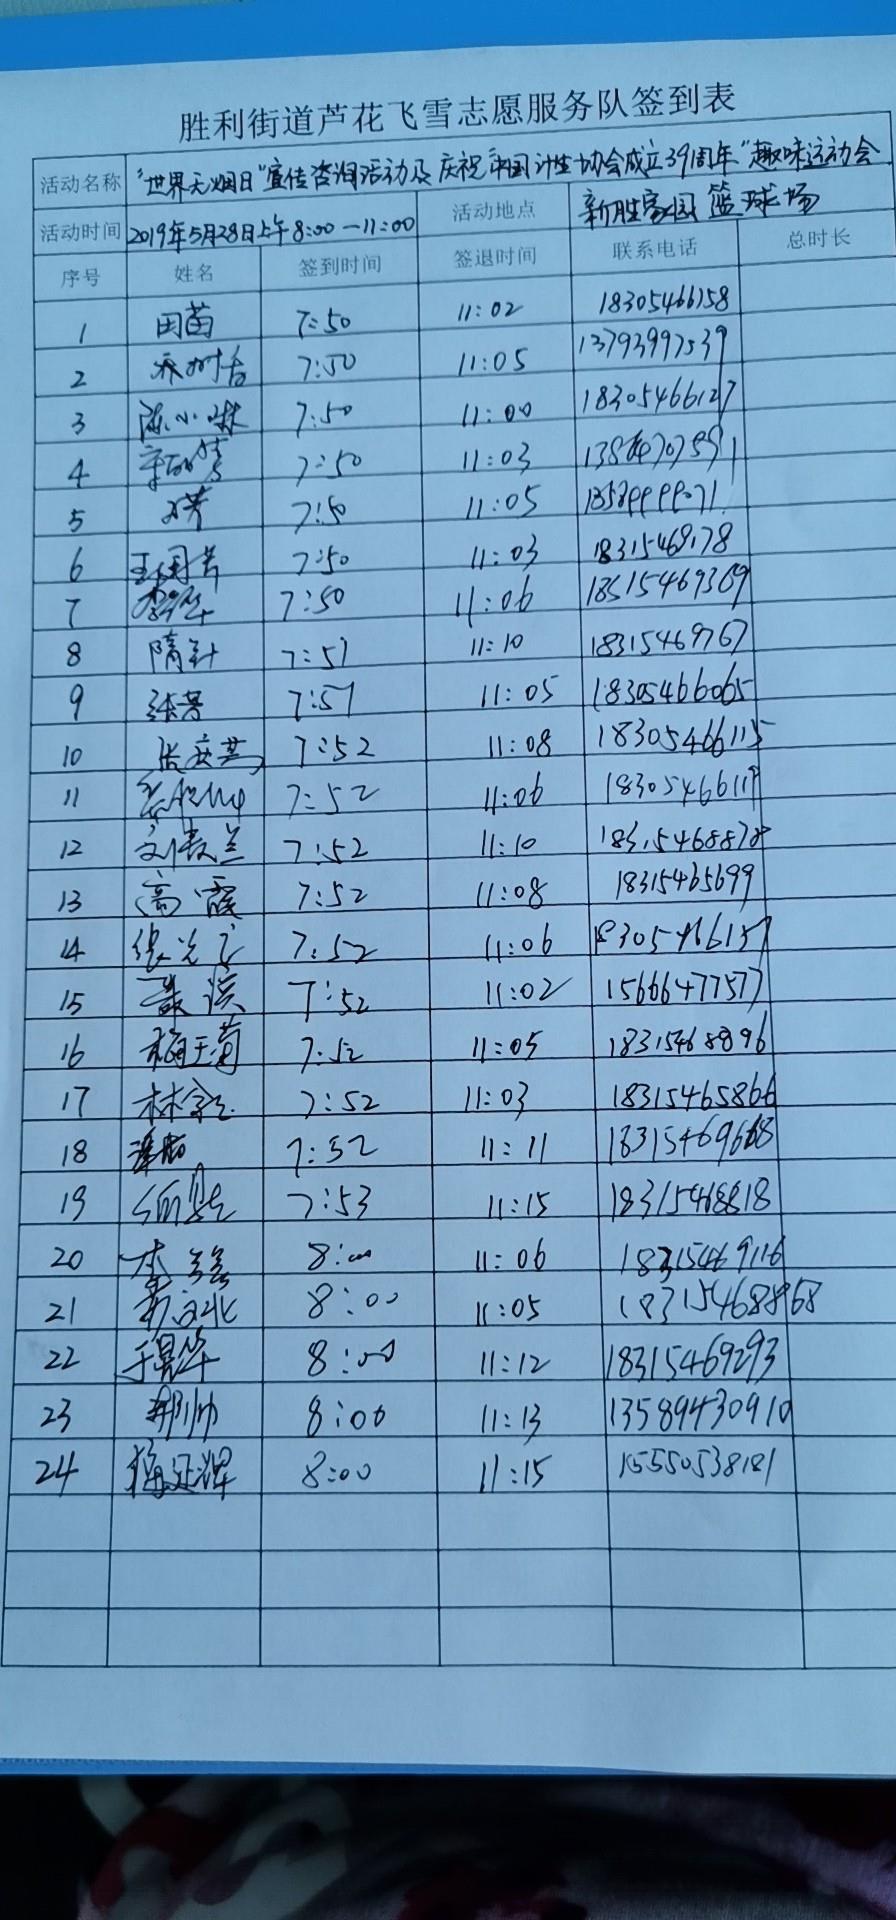 胜利街道芦花飞雪志愿服务队签到表
活动名称 "世界无烟日"宣传咨询活动及庆祝中国计生协会成立39周年"趣味运动会
活动时间 2019年5月28日上午8:00-11:00 活动地点 新胜家园篮球场
序号 姓名 签到时间 签退时间 联系电话 总时长
1 田苗 7:50 11:02 18305466158
2 7:50 11:05 13793997539
3 陈小琳 7:50 11:00 18305466127
4 7:50 11:03
5 7:50 11:05
6 王国芳 7:50 11:03
7 7:50 11:06 18515469369
8 隋针 7:51 11:10 18315469767
9 张芳 7:51 11:05 18305466065
10 7:52 11:08 18305466115
11 7:52 11:06
12 刘长兰 7:52 11:10
13 高霞 7:52 11:08 18315465699
14 7:52 11:06 18305466157
15 7:52 11:02 15666477577
16 梅玉菊 7:52 11:05 18315468896
17 7:52 11:03 18315465866
18 7:52 11:11 18315469668
19 7:53 11:15 18315468818
20 8:00 11:06 18315469116
21 8:00 11:05
22 8:00 11:12 18315469293
23 8:00 11:13 13589430910
24 8:00 11:15 15550538181